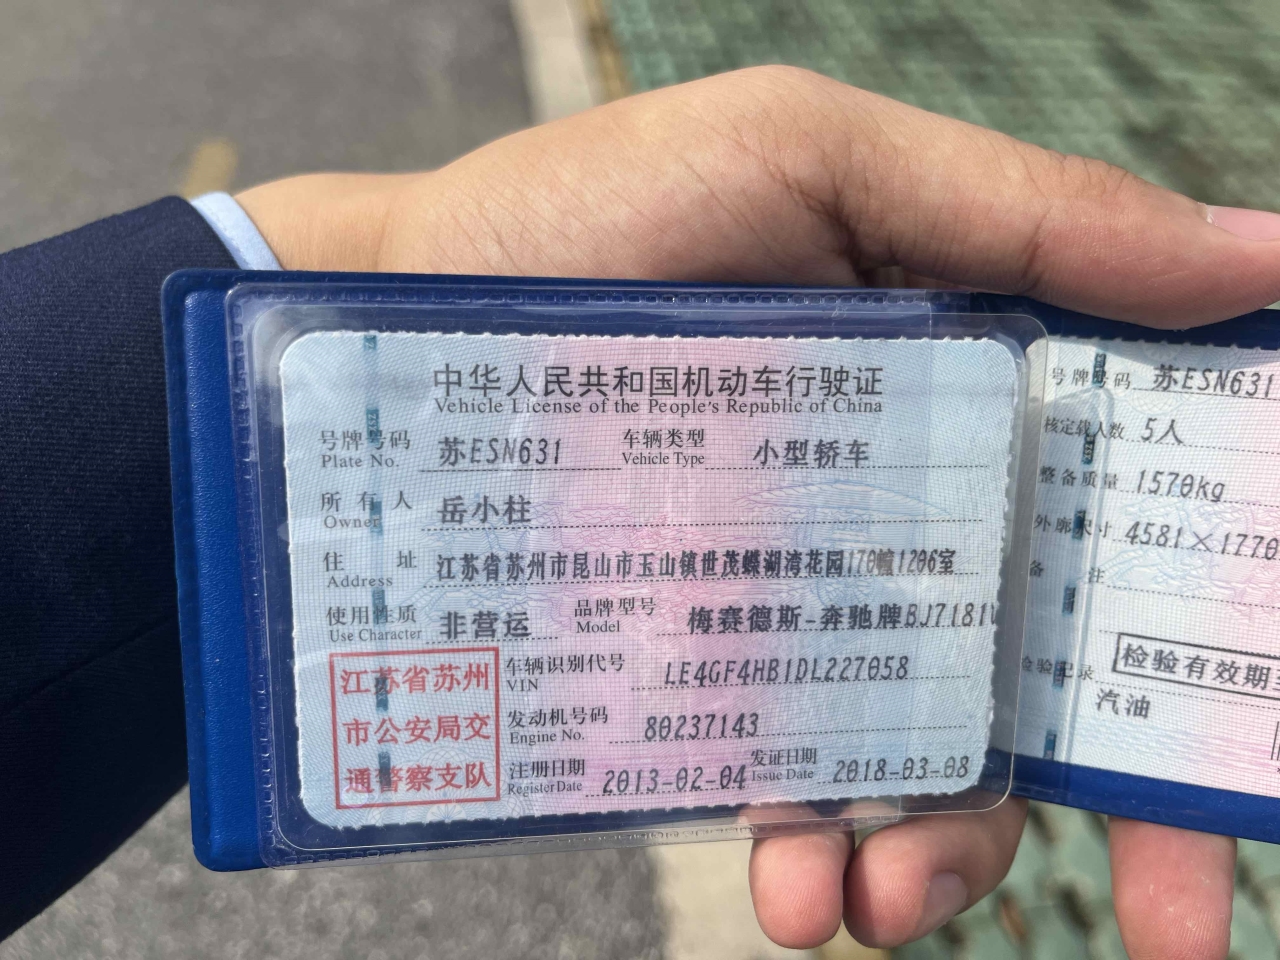 中华人民共和国机动车行驶证
Vehicle License of the People's Republic of China
号牌号码 苏ESN631 车辆类型 小型轿车
Plate No. Vehicle Type
所有人 岳小柱
Owner
住址 江苏省苏州市昆山市玉山镇世茂蝶湖湾花园170幢1206室
Address
使用性质 非营运 品牌型号 梅赛德斯-奔驰牌BJ7181
Use Character Model
江苏省苏州
市公安局交
通警察支队
车辆识别代号 LE4GF4HB1DL227058
VIN
发动机号码 80237143
Engine No.
注册日期 2013-02-04 发证日期 2018-03-08
Register Date Issue Date
号牌号码 苏ESN631
核定载人数 5人
整备质量 1570kg
外廓尺寸 4581×1770
备注
检验有效期
检验记录
汽油